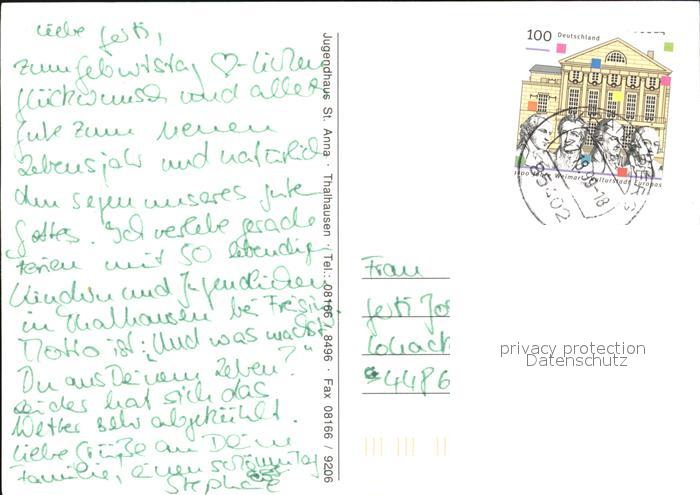 Liebe Gerti,
zum Geburtstag ♡-lichen
Glückwunsch und alles
Gute zum neuen
Lebensjahr und natürlich
den Segen unseres guten
Gottes. Ich verlebe gerade
Ferien mit 50 lebendig
Kindern und Jugendlichen
in Thalhausen bei Freising.
Motto ist: "Und was machst
Du aus Deinem Leben?"
Leider hat sich das
Wetter sehr abgekühlt.
Liebe Grüße an Deine
Familie, einen schönen Tag
Stephanie
Jugendhaus St. Anna · Thalhausen · Tel.: 08166 / 8496 · Fax 08166 / 9206
100 Deutschland
Weimar Kulturstadt Europas
85402
Frau
Gerti Jos
4486
privacy protection
Datenschutz